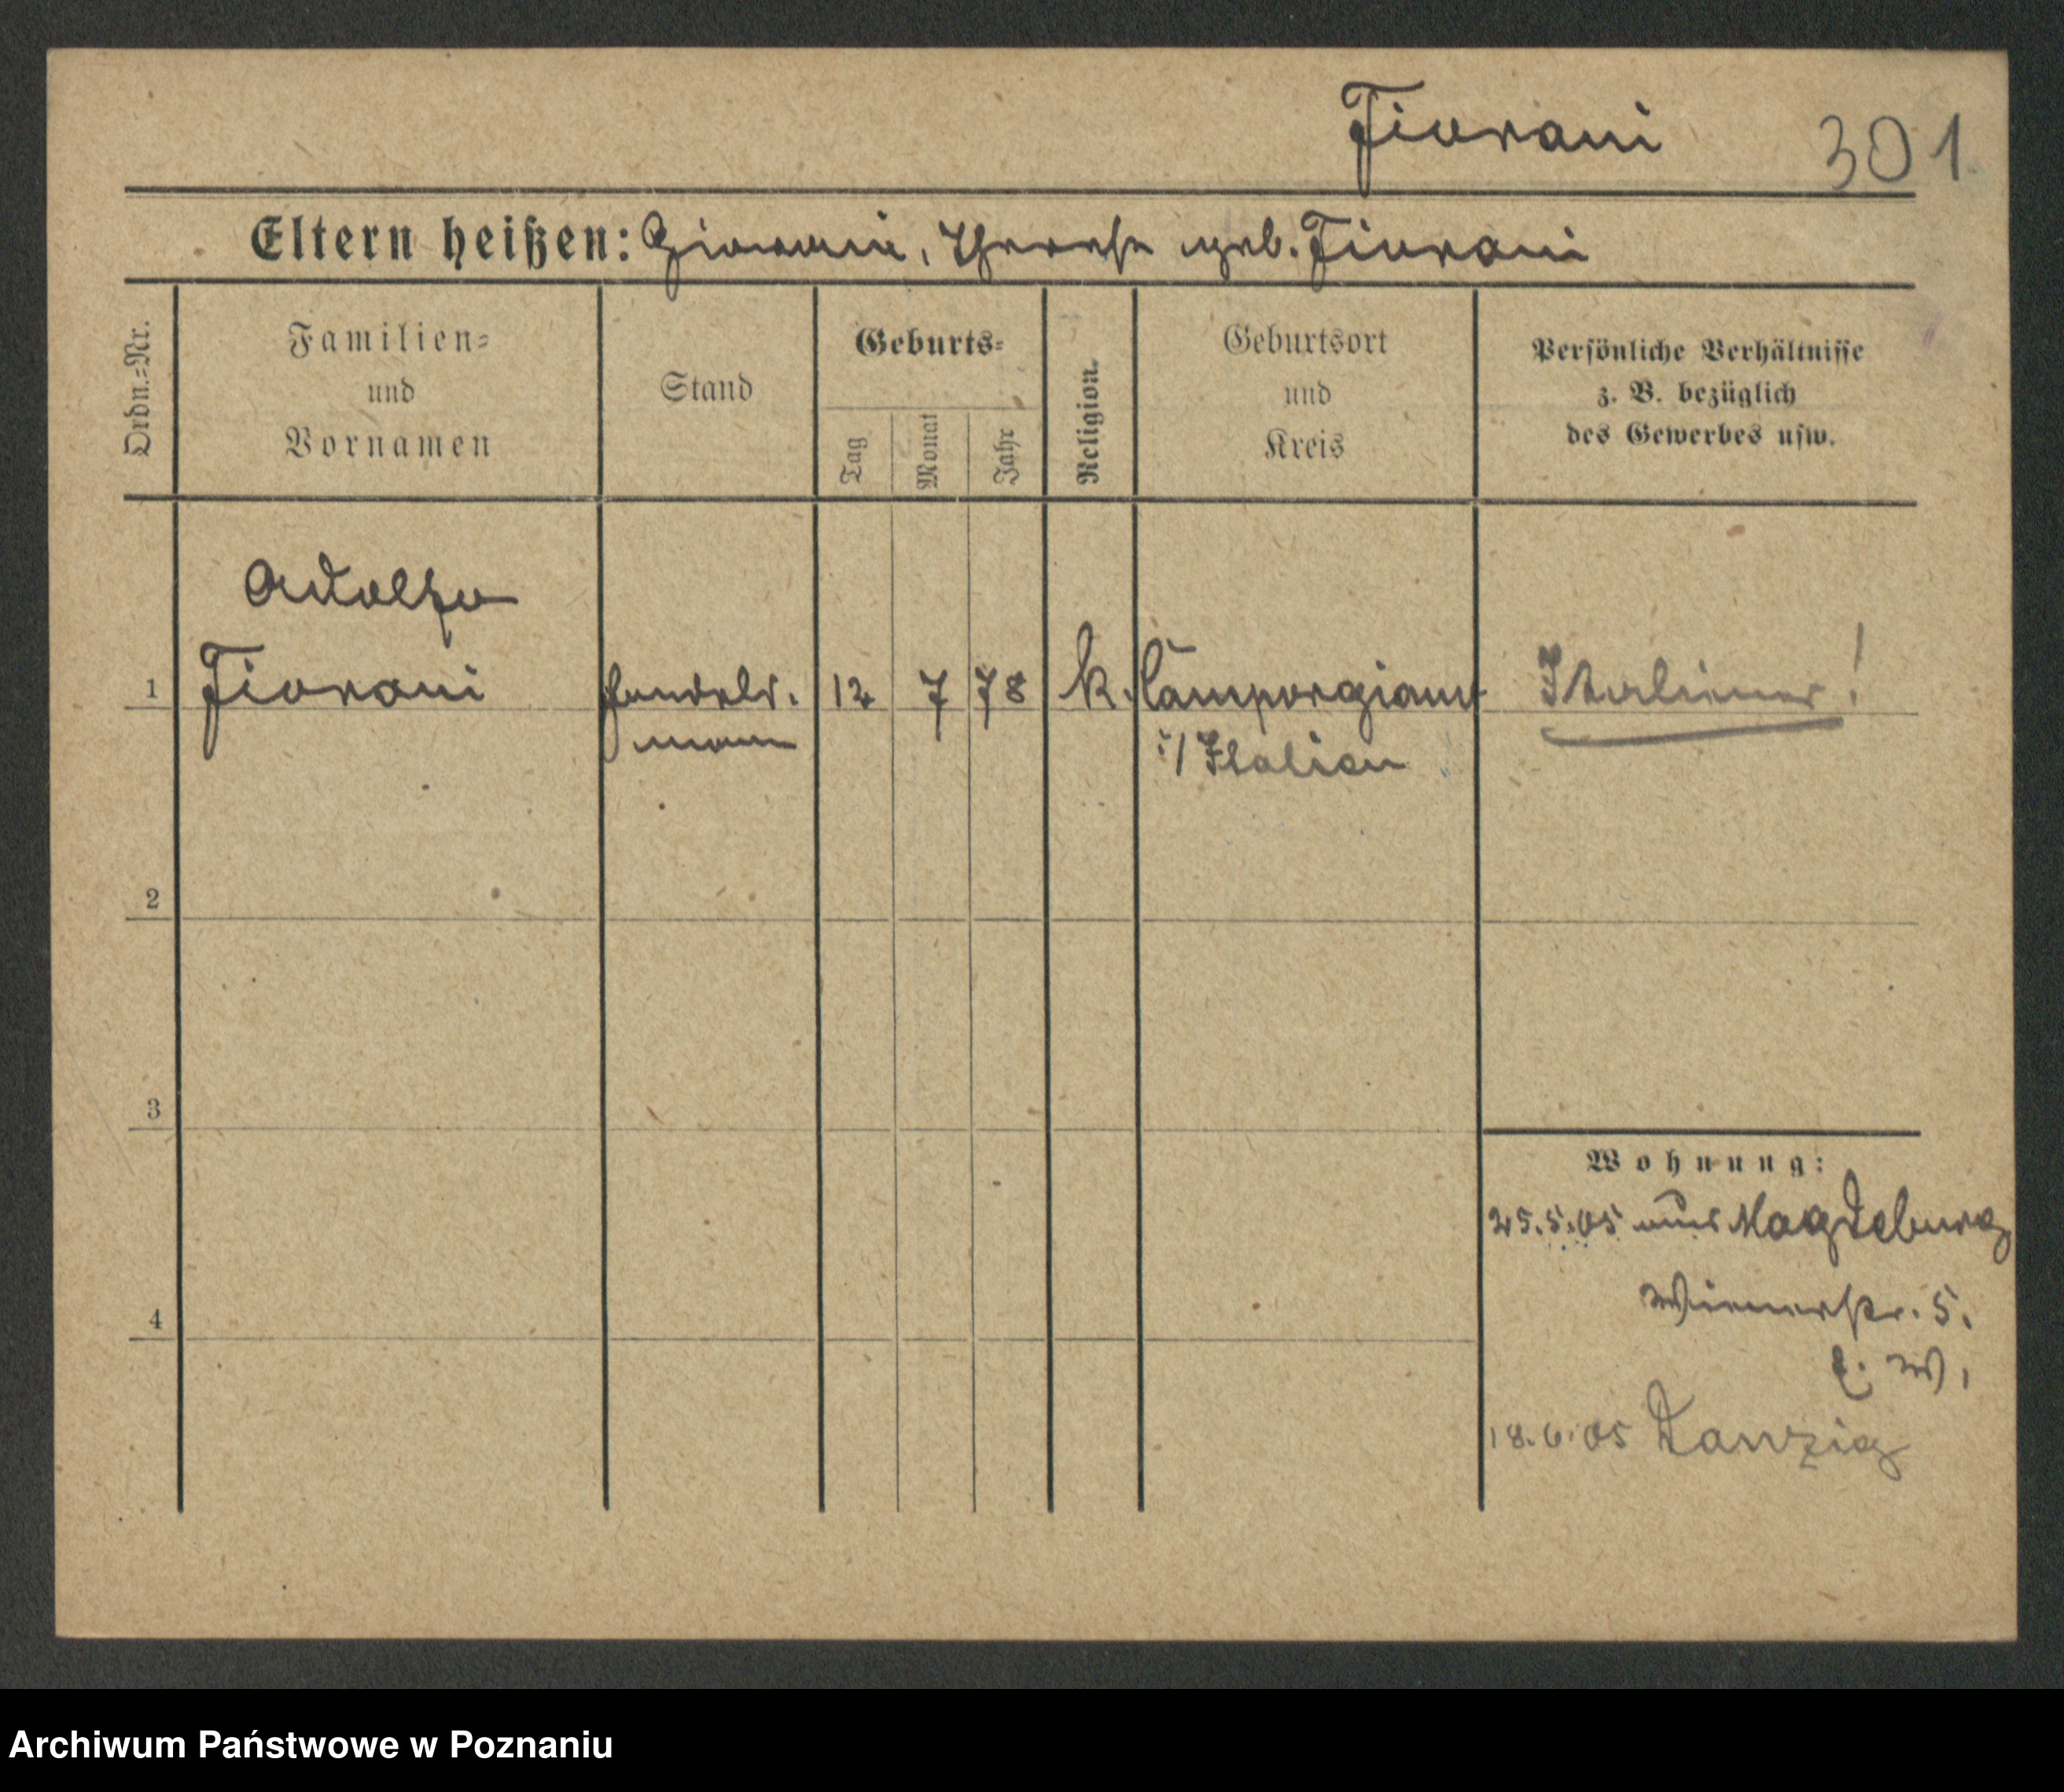 Fiorani
301.
Eltern heißen: Giovanni, Therese geb. Fiorani
Ordn.=Nr.
Familien=
und
Vornamen
Stand
Geburts=
Tag
Monat
Jahr
Religion.
Geburtsort
und
Kreis
Persönliche Verhältnisse
z. B. bezüglich
des Gewerbes usw.
Adolfo
1 Fiorani Handels. 12 7 78 k. Camporgiano Italiener!
mann i/Italien
2
3
4
Wohnung:
25.5.05 aus Magdeburg
Wienerstr. 5.
b. W.
18.6.05 Danzig
Archiwum Państwowe w Poznaniu